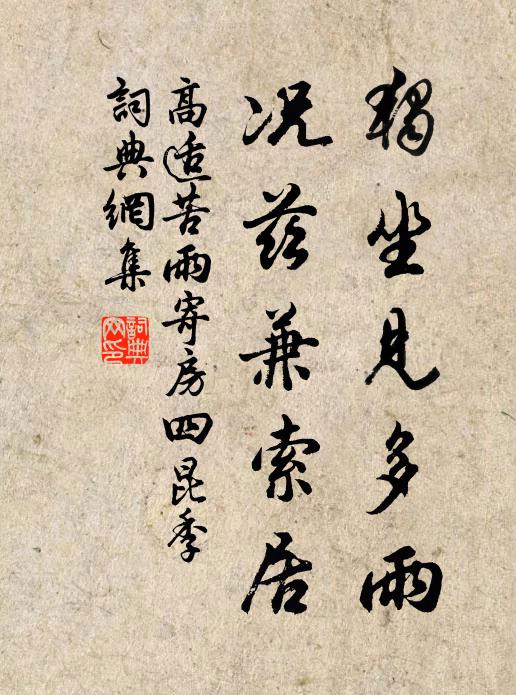 獨坐見多雨
况茲兼索居
高适苦雨寄房四昆季
詞典網集
詞典
网印